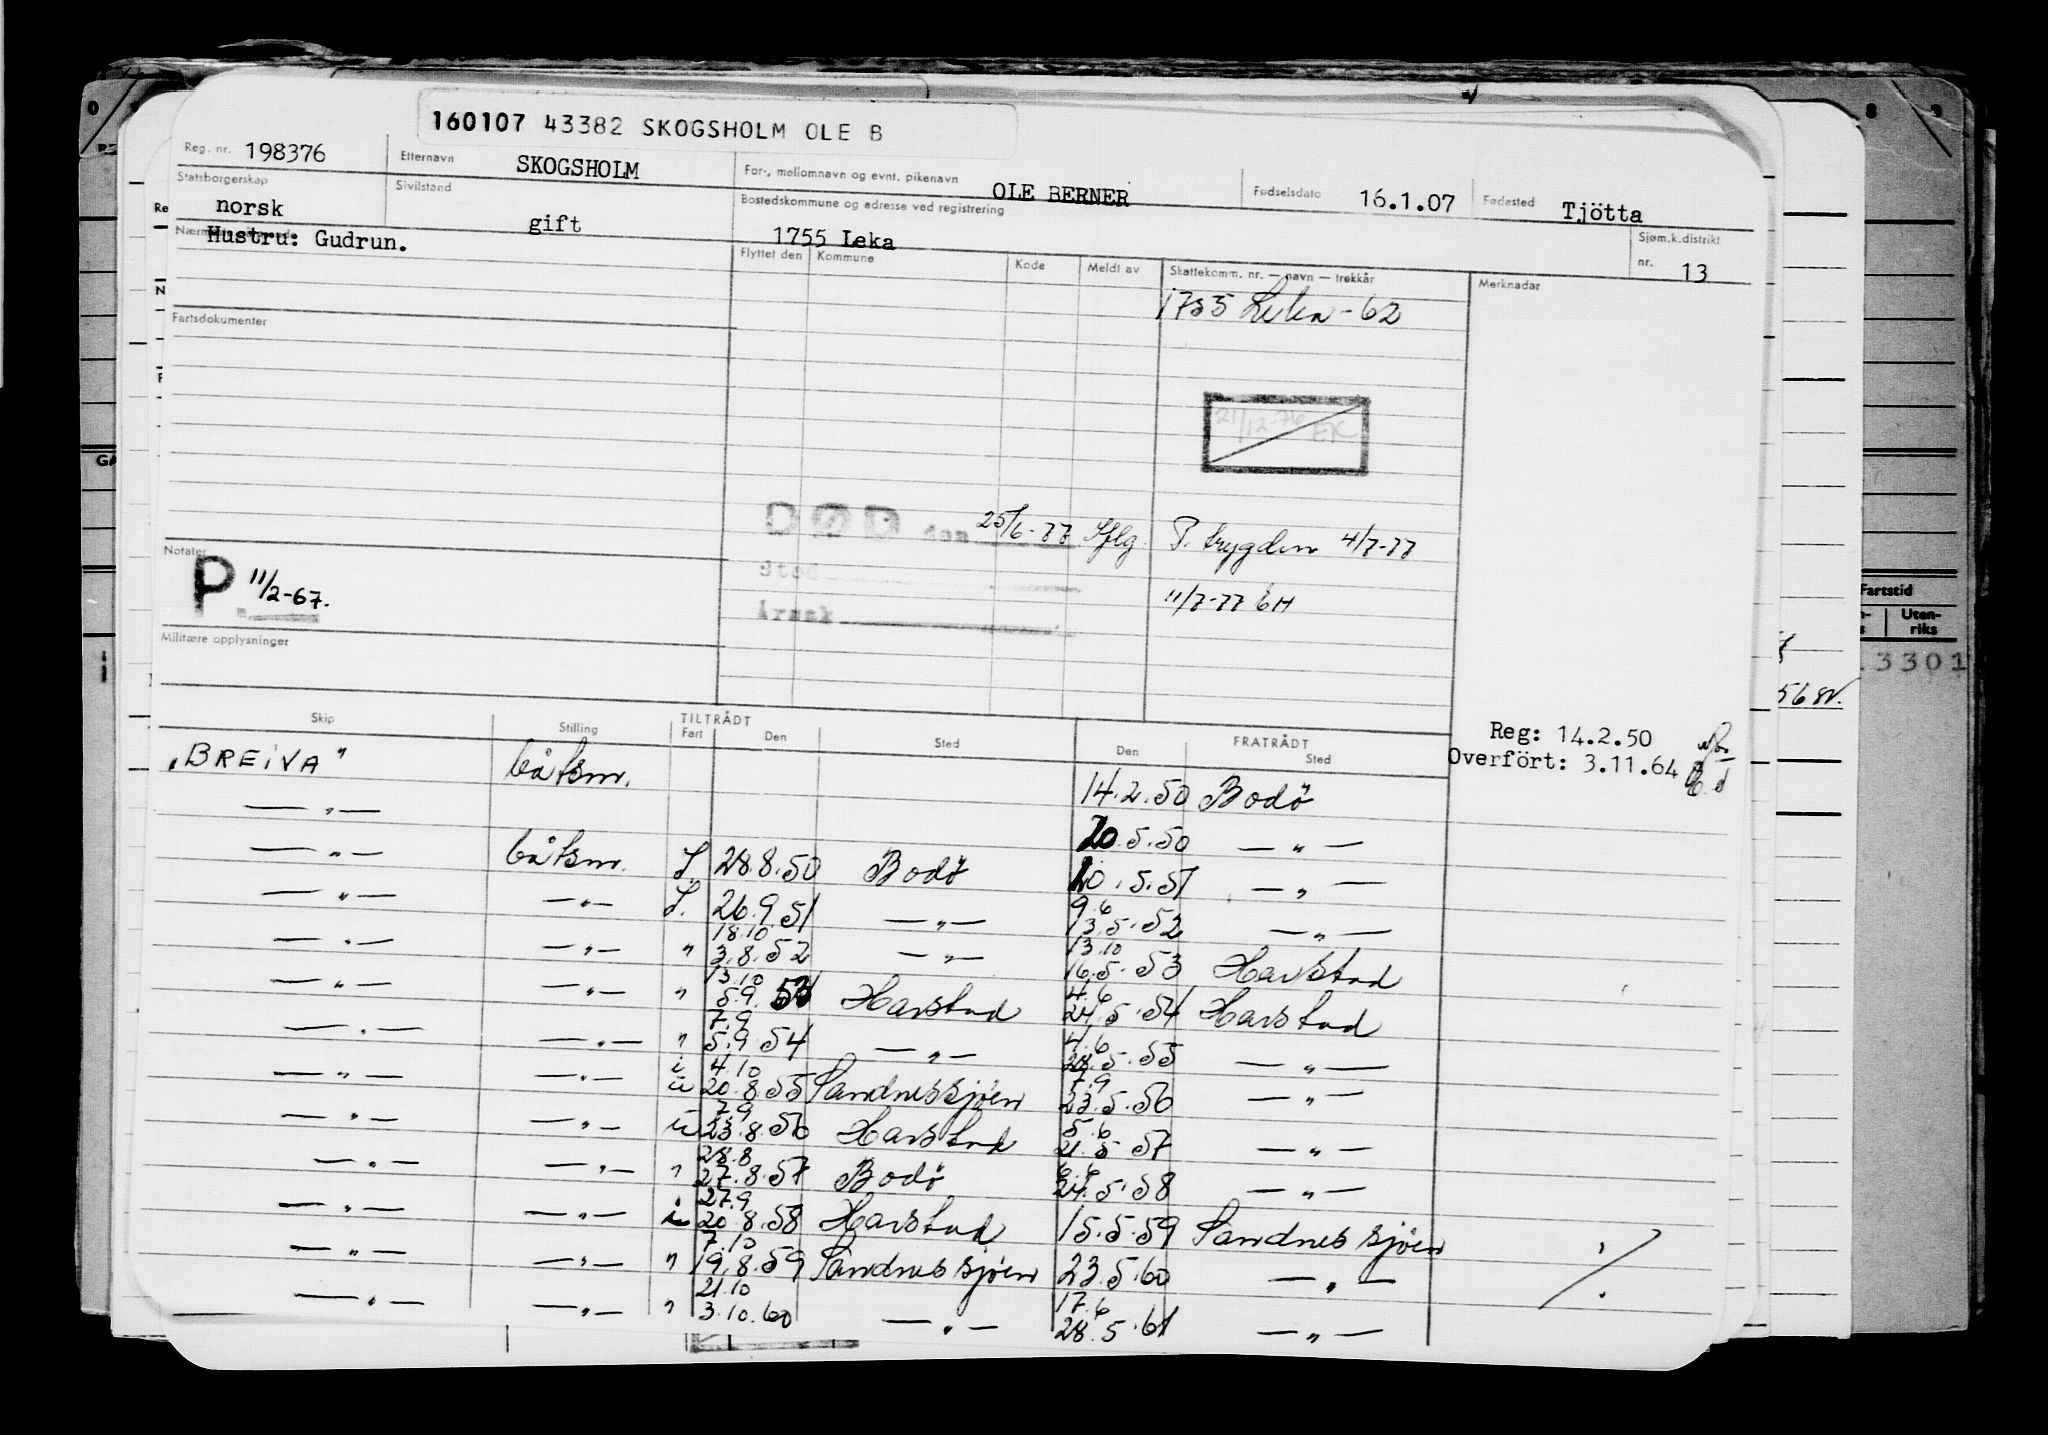 160107 43382 SKOGSHOLM OLE B
Reg. nr. 198376 Etternavn SKOGSHOLM For-, mellomnavn og evnt. pikenavn OLE BERNER Fødselsdato 16.1.07 Fødested Tjötta
Statsborgerskap norsk Sivilstand gift Bostedskommune og adresse ved registrering 1755 Leka Sjøm.k.distrikt nr. 13
Hustru: Gudrun.
Flyttet den Kommune Kode Meldt av Skattekomm. nr. — navn — trekkår Merknader
1755 Leka - 62
Fartsdokumenter
21/12-76 EK
DØD den 25/6-77 Sflg. P. trygden 4/7-77
Notater
P 11/2-67.
Sted
11/7-77 GH
Årsak
Militære opplysninger
Reg: 14.2.50
Overfört: 3.11.64
Skip Stilling TILTRÅDT Fart Den Sted FRATRÅDT Den Sted
"BREIVA" båtsm. 14.2.50 Bodö
— " — 20.5.50 — " —
— " — båtsm. I. 28.8.50 Bodö 20.5.51 — " —
— " — — " — I. 26.9.51 — " — 9.6 13.5.52 — " —
— " — — " — " 18.10 3.8.52 — " — 13.10 16.5.53 Harstad
— " — — " — " 13.10 5.9.53 Harstad 4.6 24.5.54 Harstad
— " — — " — " 7.9 5.9.54 — " — 4.6 28.5.55 — " —
— " — — " — i u 4.10 20.8.55 Sandnessjøen 7.9 23.5.56 — " —
— " — — " — u 7.9 23.8.56 Harstad 5.6 21.5.57 — " —
— " — — " — " 28.8 27.8.57 Bodö 6.6 24.5.58 — " —
— " — — " — i 27.9 20.8.58 Harstad 15.5.59 Sandnessjøen
— " — — " — " 7.10 19.8.59 Sandnessjøen 23.5.60 — " —
— " — — " — " 21.10 3.10.60 — " — 17.6 28.5.61 — " —
Fartstid
Uten-
riks
3301